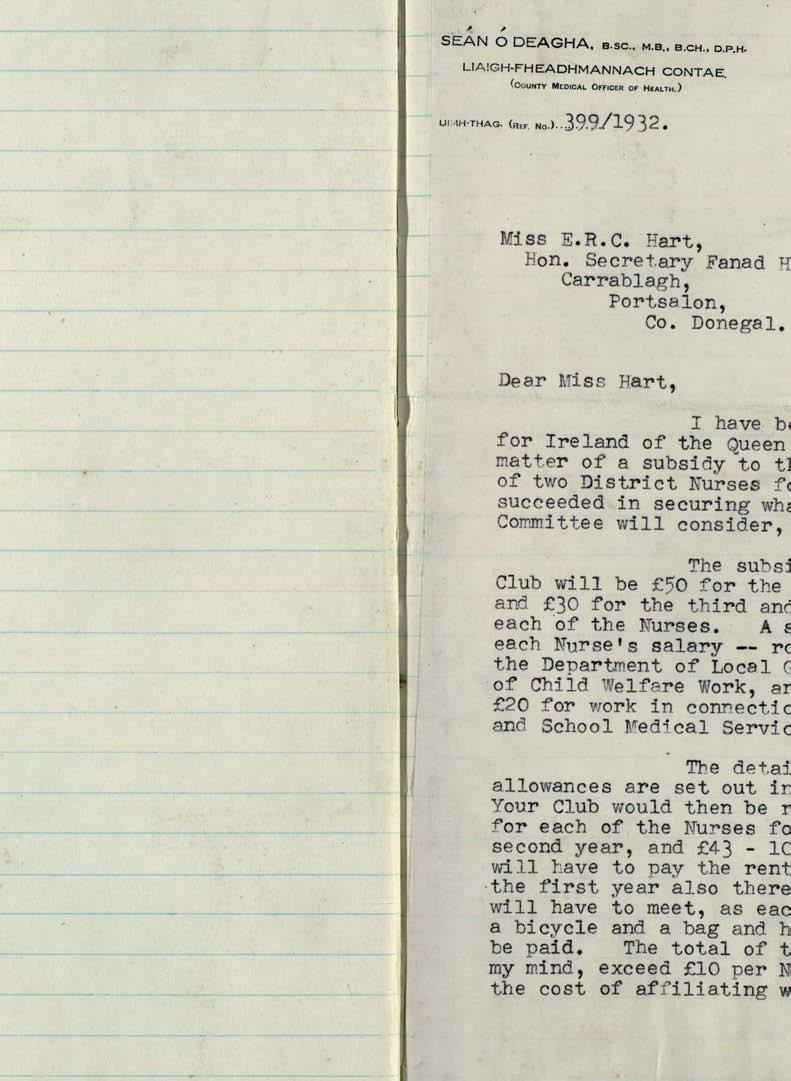 SEÁN Ó DEAGHA, B.SC., M.B., B.CH., D.P.H.
LIAIGH-FHEADHMANNACH CONTAE.
(COUNTY MEDICAL OFFICER OF HEALTH.)
UIMH-THAG. (REF. NO.)..399/1932.
Miss E.R.C. Hart,
Hon. Secretary Fanad
Carrablagh,
Portsalon,
Co. Donegal.
Dear Miss Hart,
I have
for Ireland of the Queen
matter of a subsidy to
of two District Nurses
succeeded in securing
Committee will consider,
The
Club will be £50 for the
and £30 for the third
each of the Nurses. A
each Nurse's salary --
the Department of Local
of Child Welfare Work,
£20 for work in
and School Medical
The
allowances are set out
Your Club would then be
for each of the Nurses
second year, and £43 -
will have to pay the
the first year also
will have to meet, as
a bicycle and a bag and
be paid. The total of
my mind, exceed £10 per
the cost of affiliating